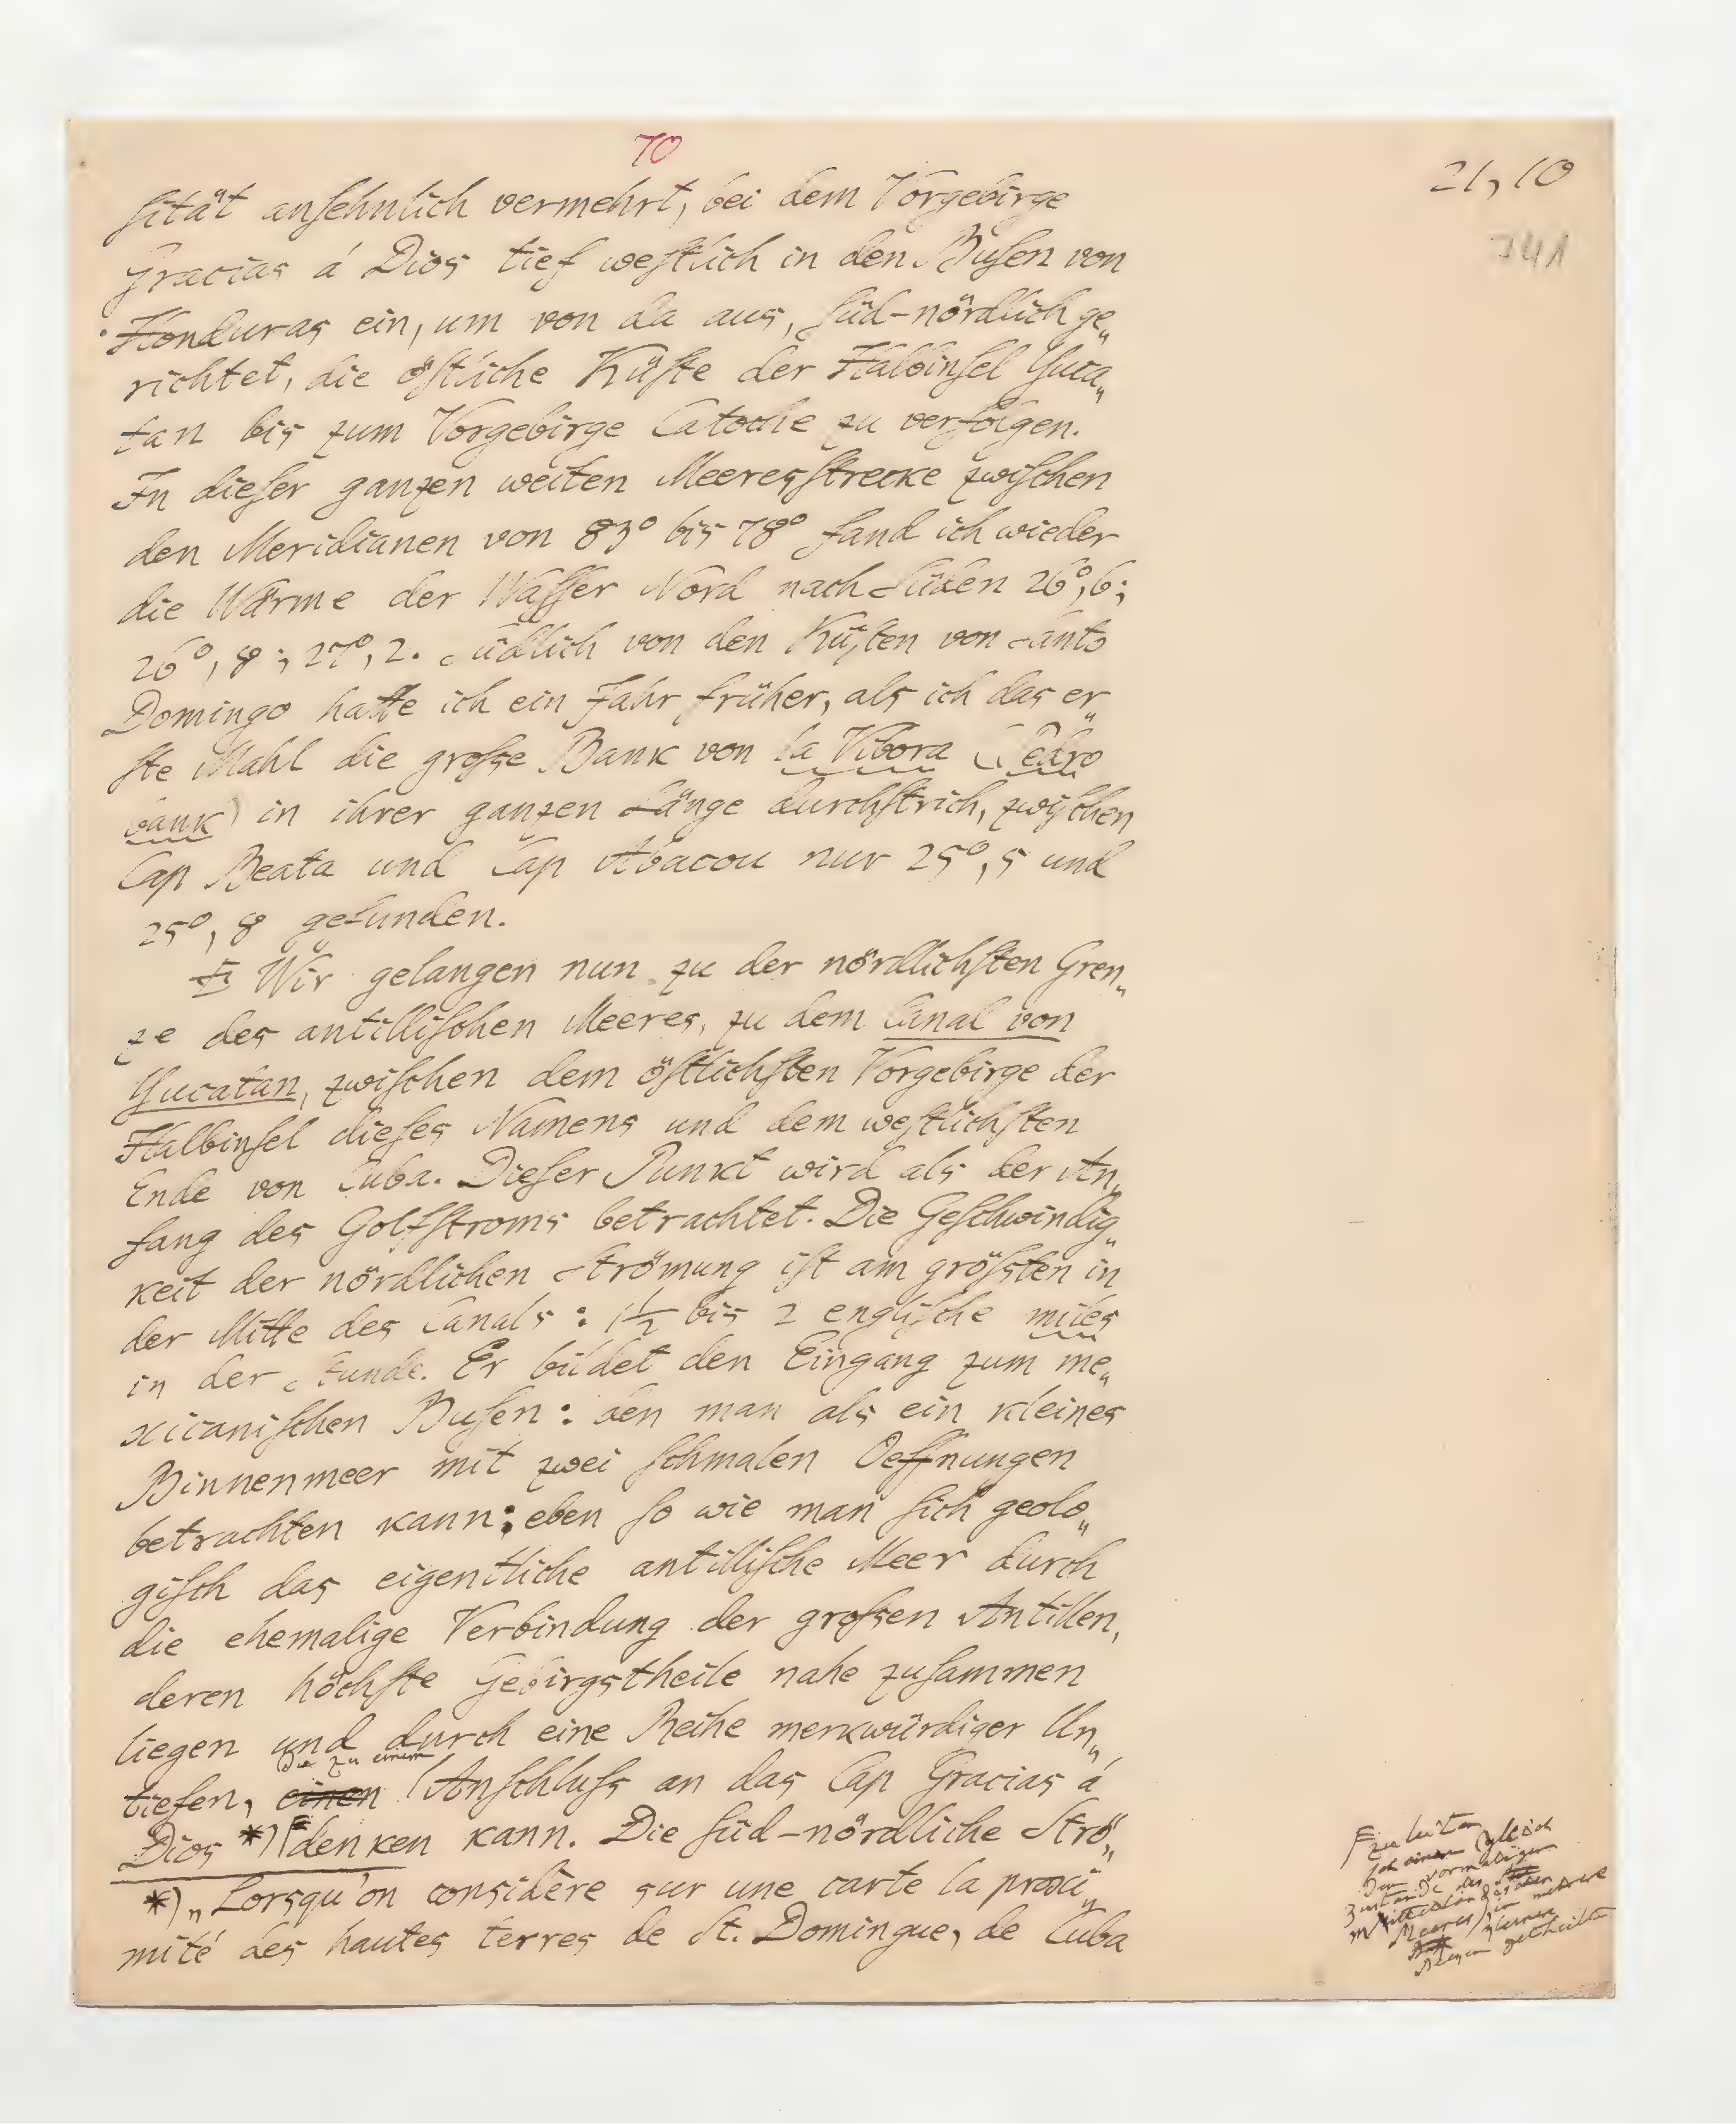 70
21, 10
341
ſität anſehnlich vermehrt, bei dem Vorgebirge
Gracias á Dios tief weſtlich in den Buſen von
Honduras ein, um von da aus, ſüd-nördlich ge„
richtet, die öſtliche Küſte der Halbinſel Yuca„
tan bis zum Vorgebirge Catoche zu verfolgen.
In dieſer ganzen weiten Meeresſtrecke zwiſchen
den Meridianen von 83° bis 78° fand ich wieder
die Wärme der Waſſer Nord nach Süden 26°,6;
26°, 8; 27°, 2. Südlich von den Küſten von Santo
Domingo hatte ich ein Jahr früher, als ich das er„
ſte Mahl die große Bank von la Vibora (Pedro
bank) in ihrer ganzen Länge durchſtrich, zwiſchen
Cap Beata und Cap Abacou nur 25°, 5 und
25°, 8 gefunden.
Wir gelangen nun zu der nördlichſten Gren„
ze des antilliſchen Meeres, zu dem Canal von
Yucatan, zwiſchen dem öſtlichſten Vorgebirge der
Halbinſel dieſes Namens und dem weſtlichſten
Ende von Cuba. Dieſer Punkt wird als der An„
fang des Golfſtroms betrachtet. Die Geſchwindig„
keit der nördlichen Strömung iſt am gröſsten in
der Mitte des Canals: 1½ bis 2 engliſche miles
in der Stunde. Er bildet den Eingang zum me„
xicaniſchen Buſen: den man als ein kleines
Binnenmeer mit zwei ſchmalen Oeffnungen
betrachten kann; eben ſo wie man ſich geolo„
giſch das eigentliche antilliſche Meer durch
die ehemalige Verbindung der großen Antillen,
deren höchſte Gebirgstheile nahe zuſammen
liegen und durch eine Reihe merkwürdiger Un„
die zu einem
tiefen, einen Anſchluſs an das Cap Gracias á
Dios *) denken kann. Die ſüd-nördliche Strö„
*) „Lorsqu'on considère sur une carte la proxi„
mité des hautes terres de St. Domingue, de Cuba
zu leiten
gleich
dem vormaligen
Zustande des
Mittelländischen
Meeres in mehrere
kleinere
getheilt